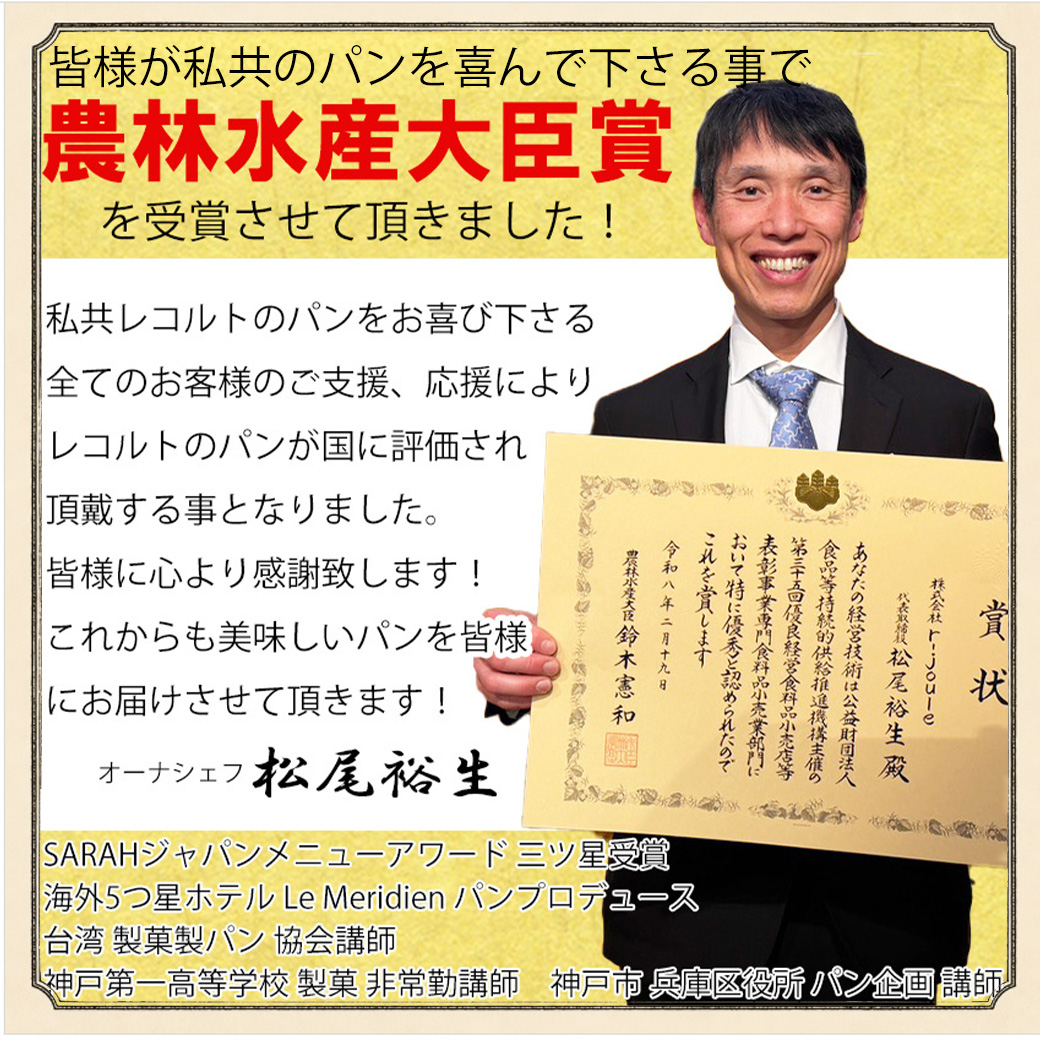 皆様が私共のパンを喜んで下さる事で
農林水産大臣賞
を受賞させて頂きました！
私共レコルトのパンをお喜び下さる
全てのお客様のご支援、応援により
レコルトのパンが国に評価され
頂戴する事となりました。
皆様に心より感謝致します！
これからも美味しいパンを皆様
にお届けさせて頂きます！
オーナシェフ 松尾裕生
賞状
株式会社 r-joule
代表取締役 松尾裕生殿
あなたの経営技術は公益財団法人
食品等持続的供給推進機構主催の
第三十五回優良経営食料品小売店等
表彰事業専門食料品小売業部門に
おいて特に優秀と認められたので
これを賞します
令和八年二月十九日
農林水産大臣 鈴木憲和
SARAHジャパンメニューアワード 三ツ星受賞
海外5つ星ホテル Le Meridien パンプロデュース
台湾 製菓製パン 協会講師
神戸第一高等学校 製菓 非常勤講師 神戸市 兵庫区役所 パン企画 講師